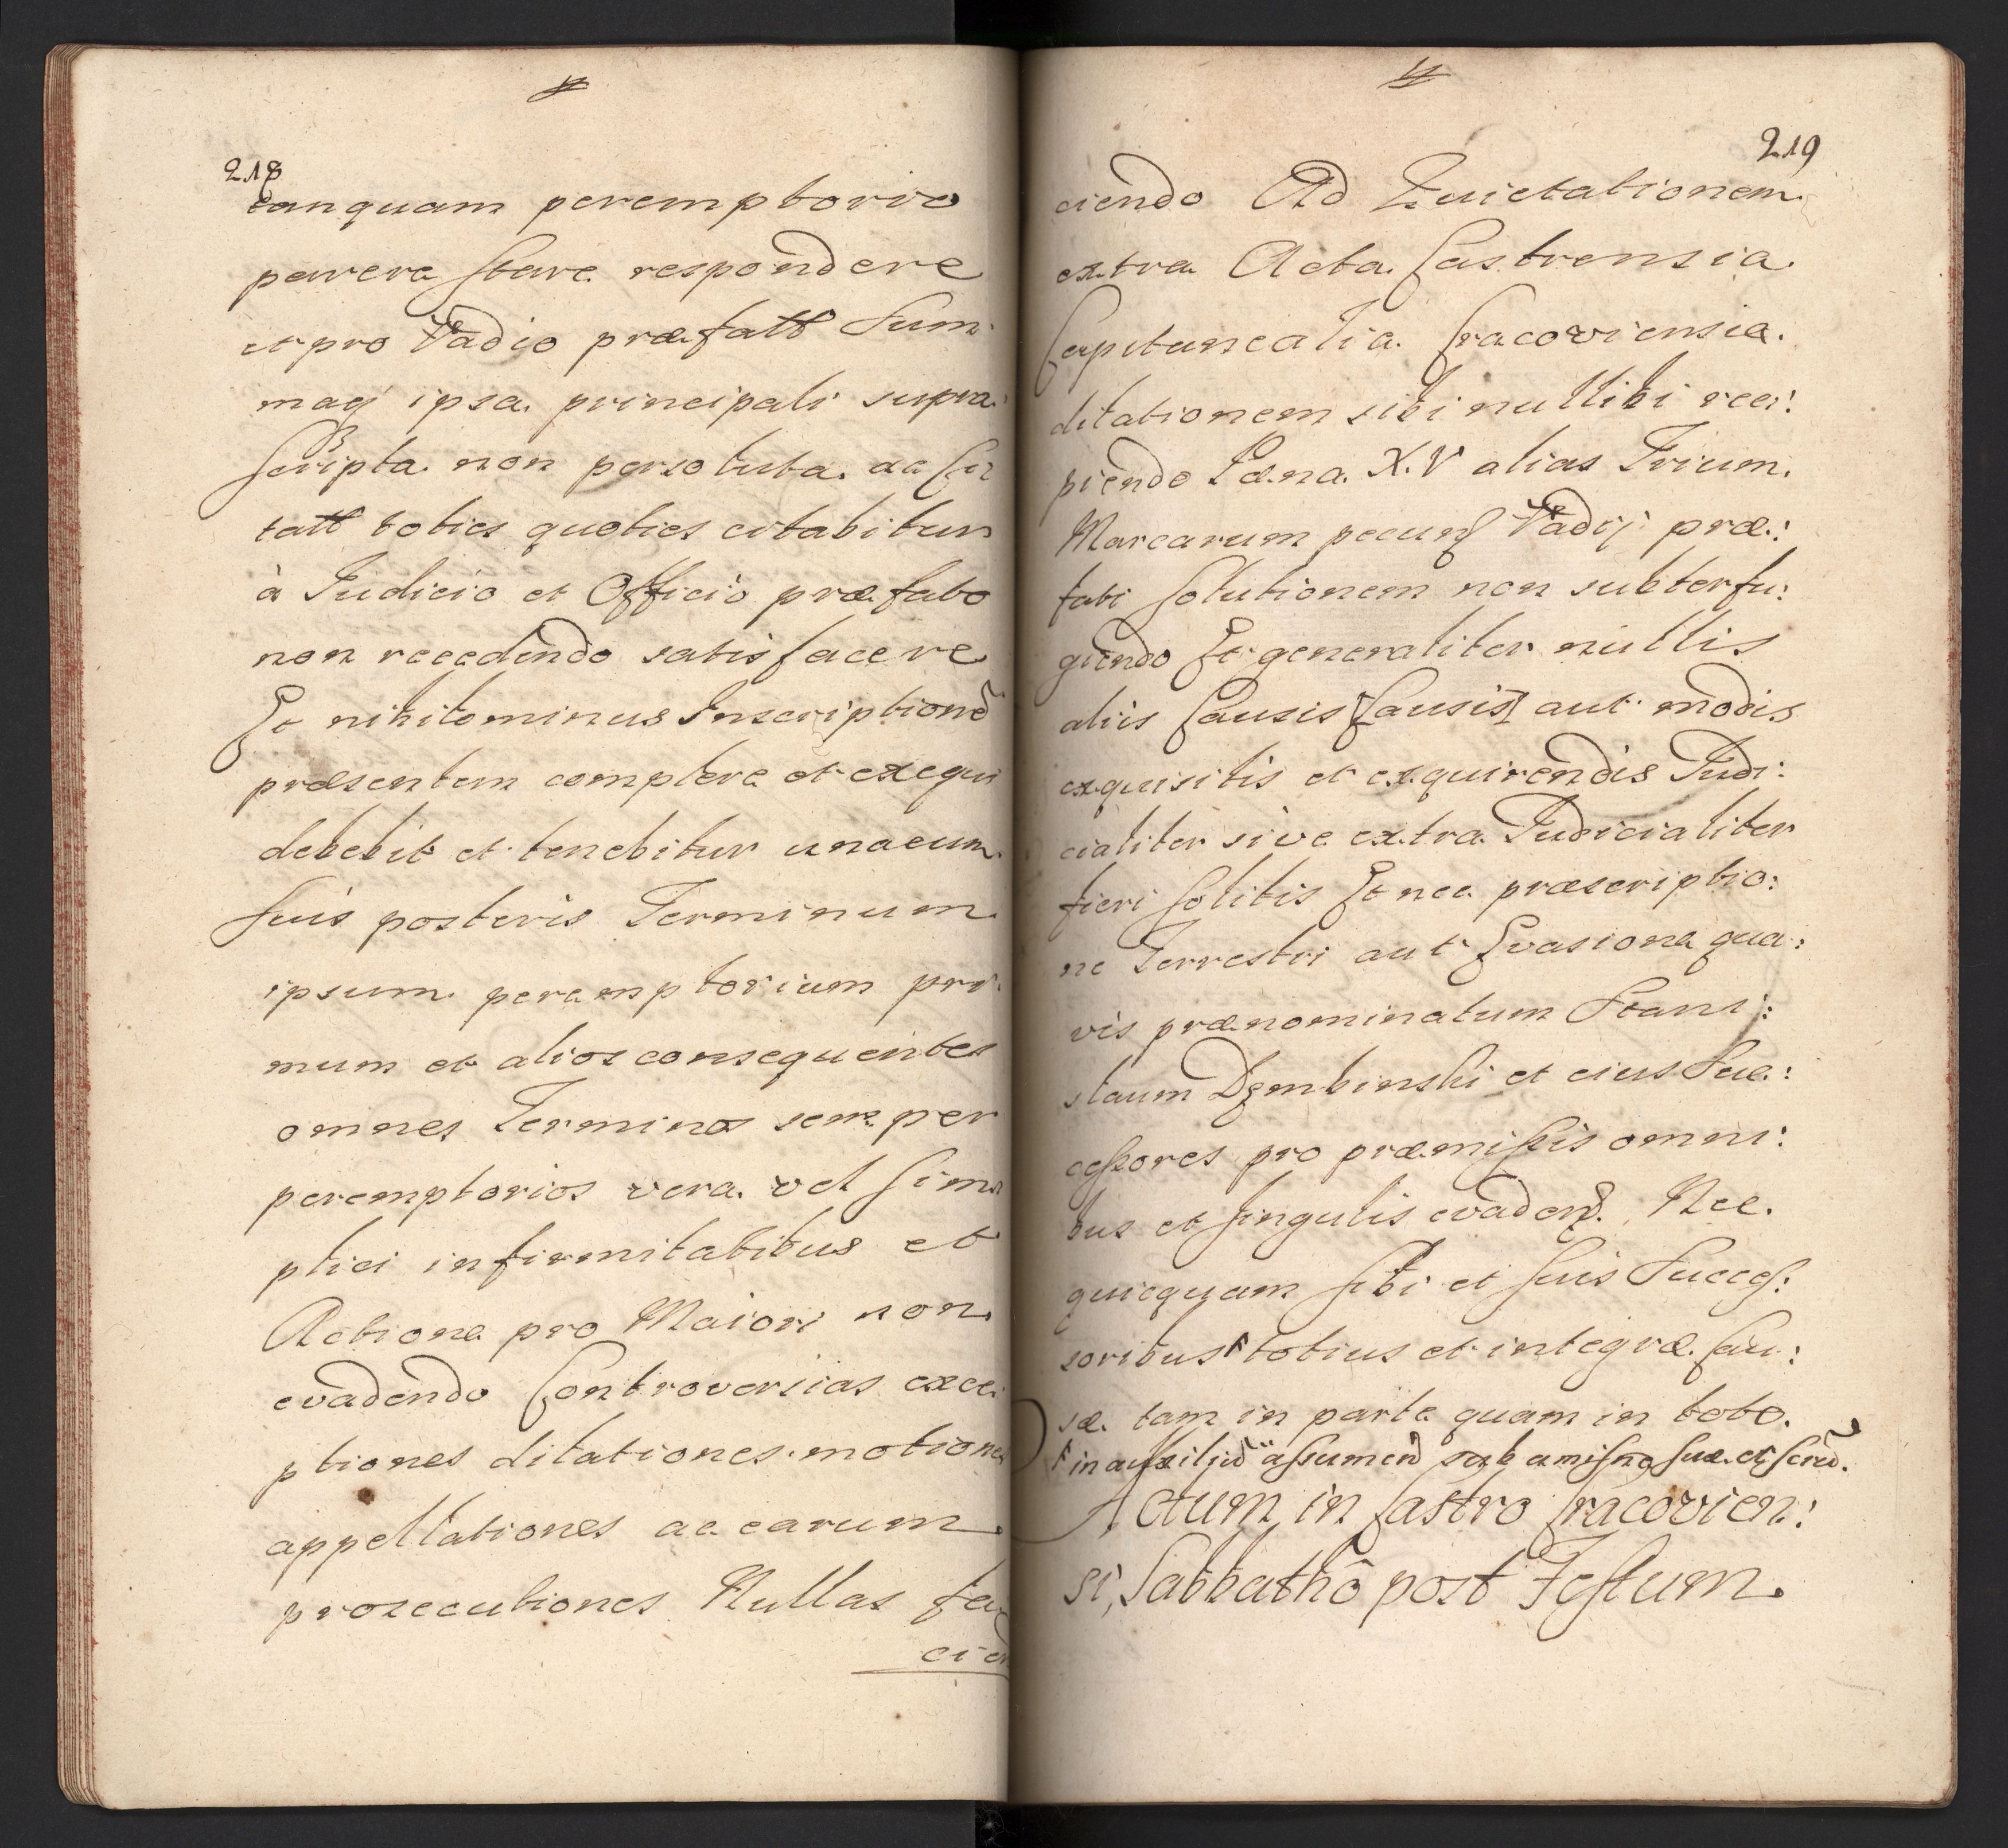 218
tanquam peremptorio
parere stare respondere
et pro Vadio præfatt Sum
mag ipsa principali supra
scripta non persoluta ac Ci
tatt toties quoties citabitur
à Judicio et Officio præfato
non recedendo satisfacere
Et nihilominus Inscriptione
præsentem complere et exequi
debebit et tenebitur unacum
suis posteris Terminum
ipsum peremptorium pri
mum et alios consequentes
omnes Terminos semper
peremptorios vera vel sim
plici infirmitatibus et
Actione pro Maiori non
evadendo Controversias exce
ptiones dilationes motiones
appellationes ac earum
prosecutiones Nullas fa
cien
219
ciendo Ad Quietationem
extra Acta Castrensia
Capitanealia Cracoviensia
dilationem sibi nullibi reci:
piendo Pæna X.V alias Trium
Marcarum pecun Vadij præ:
fati solutionem non subterfu:
giendo Et generaliter nullis
aliis Causis [Causis] aut modis
exquisitis et exquirendis Judi:
cialiter sive extra Judicialiter
fieri solitis Et nec præscriptio:
ne Terrestri aut Evasione qua:
vis prænominatum Stani:
slaum Dęmbinski et eius Suc:
cessores pro præmissis omni:
bus et singulis evaden. Nec
quicquam sibi et suis Succes:
soribus totius et integræ Cau:
sæ tam in parte quam in toto.
in auxiliū assumend sub amissne suæ et
Actum in Castro Cracovien:
si, Sabbathô post Festum